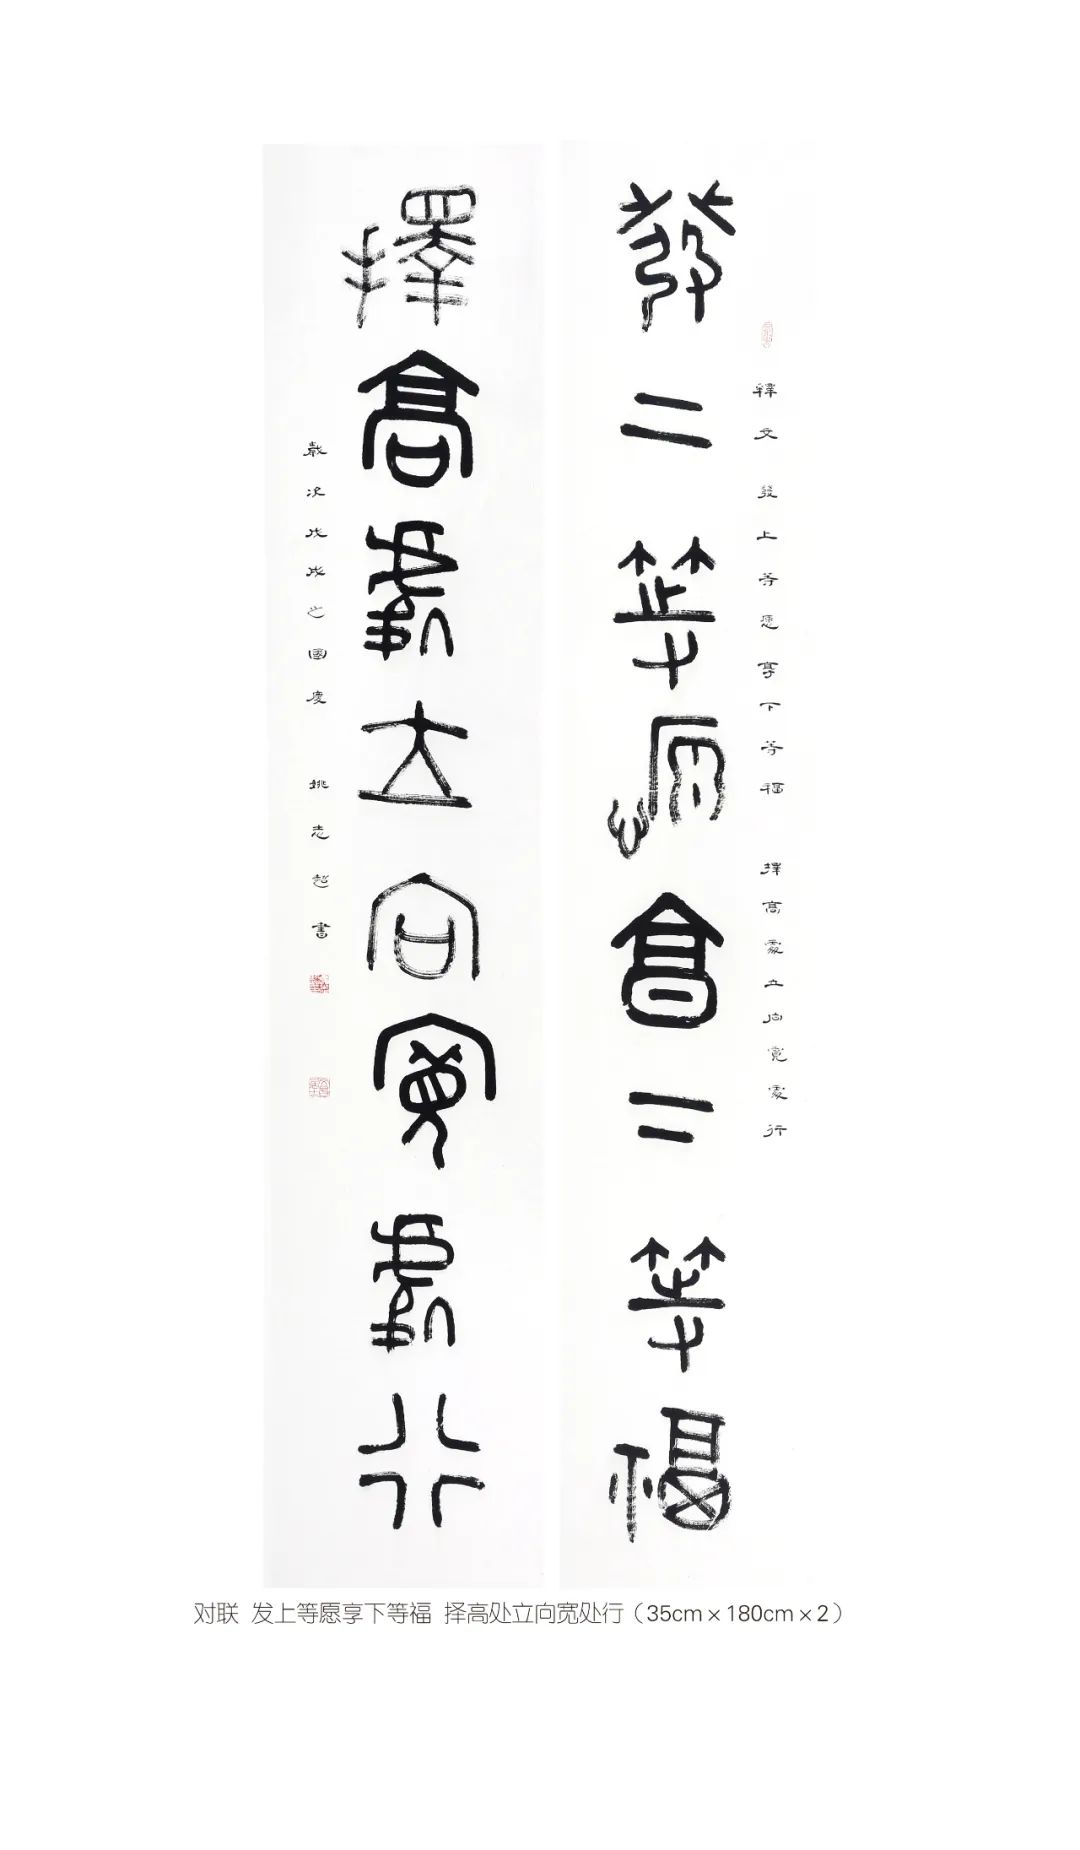 發上等愿享下等福
釋文 發上等愿享下等福 擇高處立向寬處行
擇高處立向寬處行
歲次戊戌之國慶 姚志起書
对联 发上等愿享下等福 择高处立向宽处行（35cm×180cm×2）